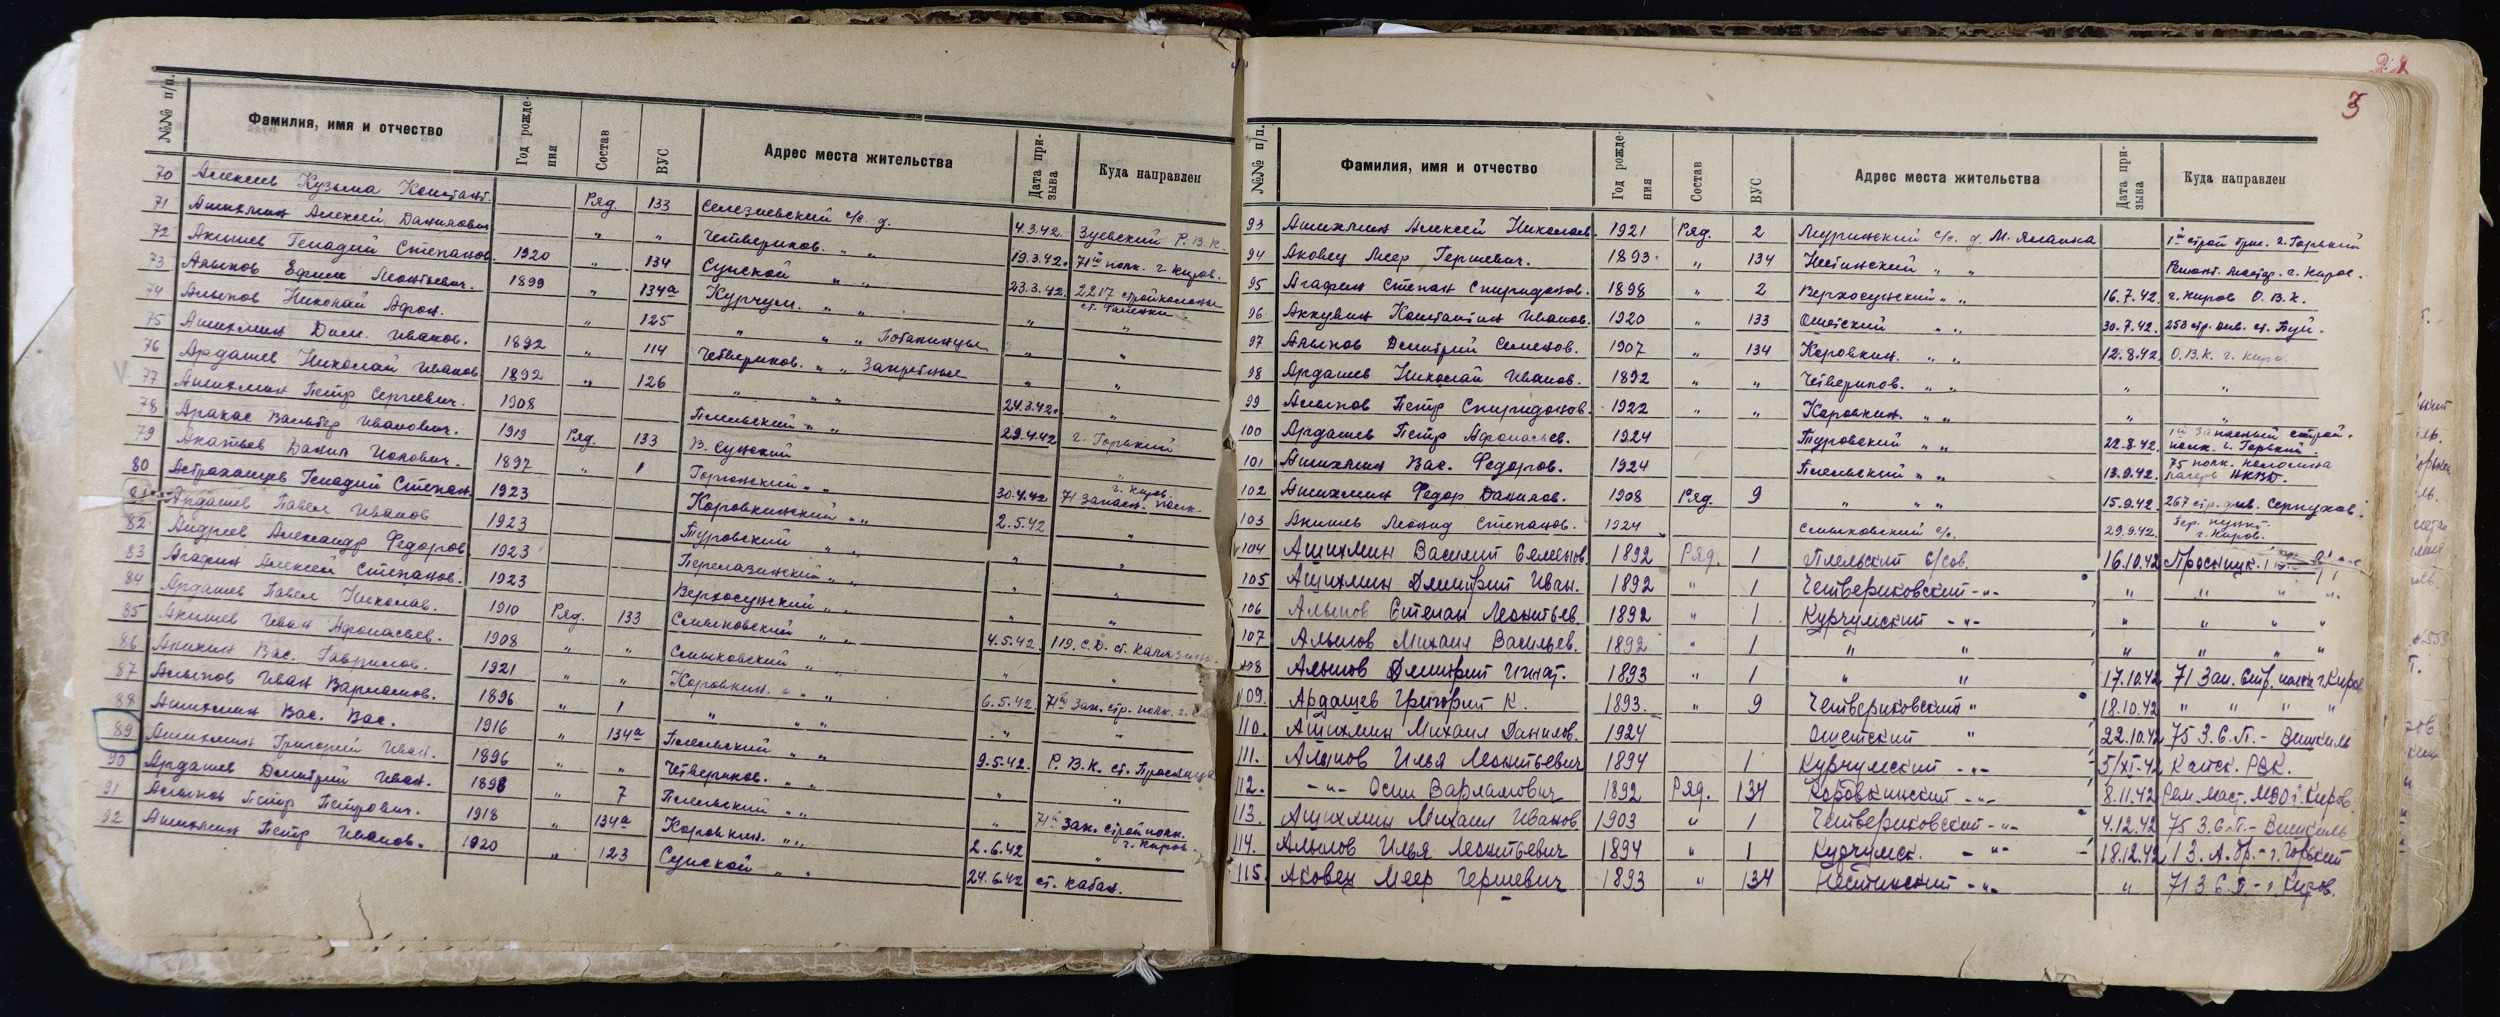 №№ п/п. Фамилия, имя и отчество Год рожде- ния Состав ВУС Адрес места жительства Дата при- зыва Куда направлен
70 Алексеев Кузьма Констант. Ряд. 133 Селезневский с/с. д. 4.3.42. Зуевский Р.В.К.
71 Ашихмин Алексей Данилович " " Четвериков. " " 19.3.42. 71й полк. г. Киров.
72 Акишев Генадий Степанов. 1920 " 134 Сунской " " 23.3.42. 2217 стройколонна
73 Алыпов Ефим Леонтьевич. 1899 " 134а Курчум. " " "
74 Алыпов Николай Афон. " 125 " " " Потанинцы " "
75 Ашихмин Дим. Иванов. 1892 " 114 Четвериков. " " " "
76 Ардашев Николай Иванов 1892 " 126 " " " 24.3.42. "
77 Ашихмин Петр Сергеевич. 1908 Плельский " " 29.4.42 г. Горький
78 Аракас Вальтер Иванович. 1919 Ряд. 133 В. Сунский "
79 Акатьев Данил Ионович. 1897 " 1 " " 30.4.42 г. Киров. 71 запасн. полк.
80 Астраханцев Генадий Степан. 1923 Коровкинский " " 2.5.42 "
81 Ардашев Павел Иванов 1923 Туровский " " " "
82 Андреев Александр Федоров. 1923 " " " "
83 Агафин Алексей Степанов. 1923 Верхосунский " " " "
84 Ардашев Павел Николаев. 1910 Ряд. 133 Смыковский " " 4.5.42. 119. С.Д. ст.
85 Акишев Иван Афонасьев. 1908 " " Смыковский " " " "
86 Аникин Вас. Гаврилов. 1921 " " Коровкин. " " 6.5.42. 71й зап. стр. полк. г.
87 Алыпов Иван Варламов. 1896 " 1 " " " " "
88 Ашихмин Вас. Вас. 1916 " 134а Плельский " " 9.5.42. Р.В.К. ст. Просница
89 Ашихмин Григорий Иван. 1896 " " Четвериков. " " " "
90 Ардашев Дмитрий Иван. 1898 " 7 Плельский " " " 71й Зап. строй полк. г. Киров.
91 Алыпов Петр Петрович. 1918 " 134а Коровкин. " " 2.6.42 "
92 Ашихмин Петр Иванов. 1920 " 123 Сунской " " 24.6.42 ст. Кабан.
3
№№ п/п. Фамилия, имя и отчество Год рожде- ния Состав ВУС Адрес места жительства Дата при- зыва Куда направлен
93 Ашихмин Алексей Николаев. 1921 Ряд. 2 с/с. д. г. Горький
94 Аковец Меер Гершевич. 1893 " 134 Нестинский " " Ремонт. мастер. г. Киров.
95 Агафин Степан Спиридонов. 1898 " 2 Верхосунский " " 16.7.42. г. Киров О.В.К.
96 Аккузин Константин Иванов. 1920 " 133 Ошетский " " 30.7.42. 258 стр. див. ст. Буй.
97 Алыпов Дмитрий Семенов. 1907 " 134 Коровкин. " " 12.8.42. О.В.К. г. Киров
98 Ардашев Николай Иванов. 1892 " " Четвериков. " " " "
99 Алыпов Петр Спиридонов. 1922 " " Коровкин. " " " "
100 Ардашев Петр Афонасьев. 1924 Туровский " " 22.8.42. 1й запасный строй. полк. г. Горький.
101 Ашихмин Вас. Федоров. 1924 Плельский " " 13.9.42. 75 полк. лагерь НКВД.
102 Ашихмин Федор Данилов. 1908 Ряд. 9 " " " 15.9.42. 267 стр. див. Серпухов.
103 Акишев Леонид Степанов. 1924 Смыковский с/с. 29.9.42. пункт. г. Киров.
104 Ашихмин Василий Семенов. 1892 Ряд. 1 Плельский с/сов. 16.10.42 Просницк.
105 Ашихмин Дмитрий Иван. 1892 " 1 Четвериковский -"- " " " "
106 Алыпов Степан Леонтьев 1892 " 1 Курчумский -"- " " " "
107 Алыпов Михаил Васильев. 1892 " 1 " " " " " "
108 Алыпов Дмитрий Игнат. 1893 " 1 " " 17.10.42 71 Зап. Стр. полк г. Киров
109. Ардашев Григорий К. 1893. " 9 Четвериковский " 18.10.42 " " " "
110. Ашихмин Михаил Данилов. 1924 Ошетский " 22.10.42 75 З.С.П. - Вишкиль
111. Алыпов Илья Леонтьевич 1894 1 Курчумский -"- 5/XI-42 Кайск. РВК.
112. -"- Осип Варламович 1892 Ряд. 134 Коровкинский -"- 8.11.42 Рем. Маст. МВО г. Киров
113. Ашихмин Михаил Иванов 1903 " 1 Четвериковский -"- 4.12.42 75 З.С.П. - Вишкиль
114. Алыпов Илья Леонтьевич 1894 " 1 Курчумск. -"- 18.12.42 13. А. бр. - г. Горький
115. Аковец Меер Гершевич 1893 " 134 Нестинский -"- " 71 З.С.П. - г. Киров.